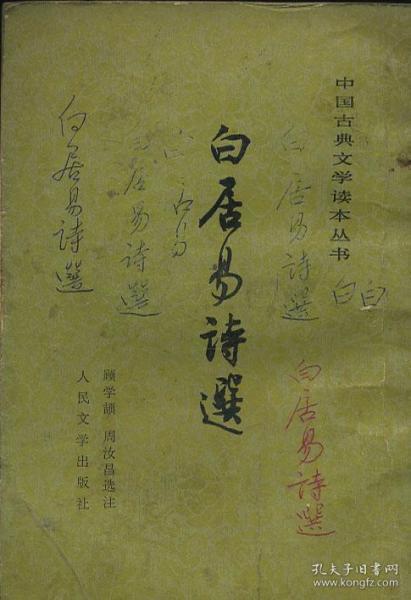 中国古典文学读本丛书
白居易詩選
白
白
白居易詩選
白居易詩選
白居易詩選
白居易詩選
顾学颉 周汝昌选注
人民文学出版社
孔夫子旧书网
www.kongfz.com